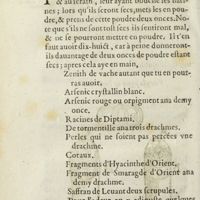 & au serain, leur ayant bouché les nari-
nes; & lors qu'ils seront secs, mets les en pou-
dre, & prens de cette poudre deux onces. No-
te que s'ils ne sont tost secs ils sentiront mal,
& ne se pourront mettre en poudre. Il t'en
faut auoir dix-huict, car à peine donneront-
ils dauantage de deux onces de poudre estant
secs; apres cela aye en main,
Zenith de vache autant que tu en pour-
ras auoir,
Arsenic crystallin blanc,
Arsenic rouge ou orpigment ana demy
once,
Racines de Diptami,
De tormentille ana trois drachmes,
Perles qui ne soient pas percées vne
drachme,
Coraux,
Fragments d'Hyacinthe d'Orient,
Fragment de Smaragde d'Orient ana
demy drachme.
Saffran de Leuant deux scrupules,